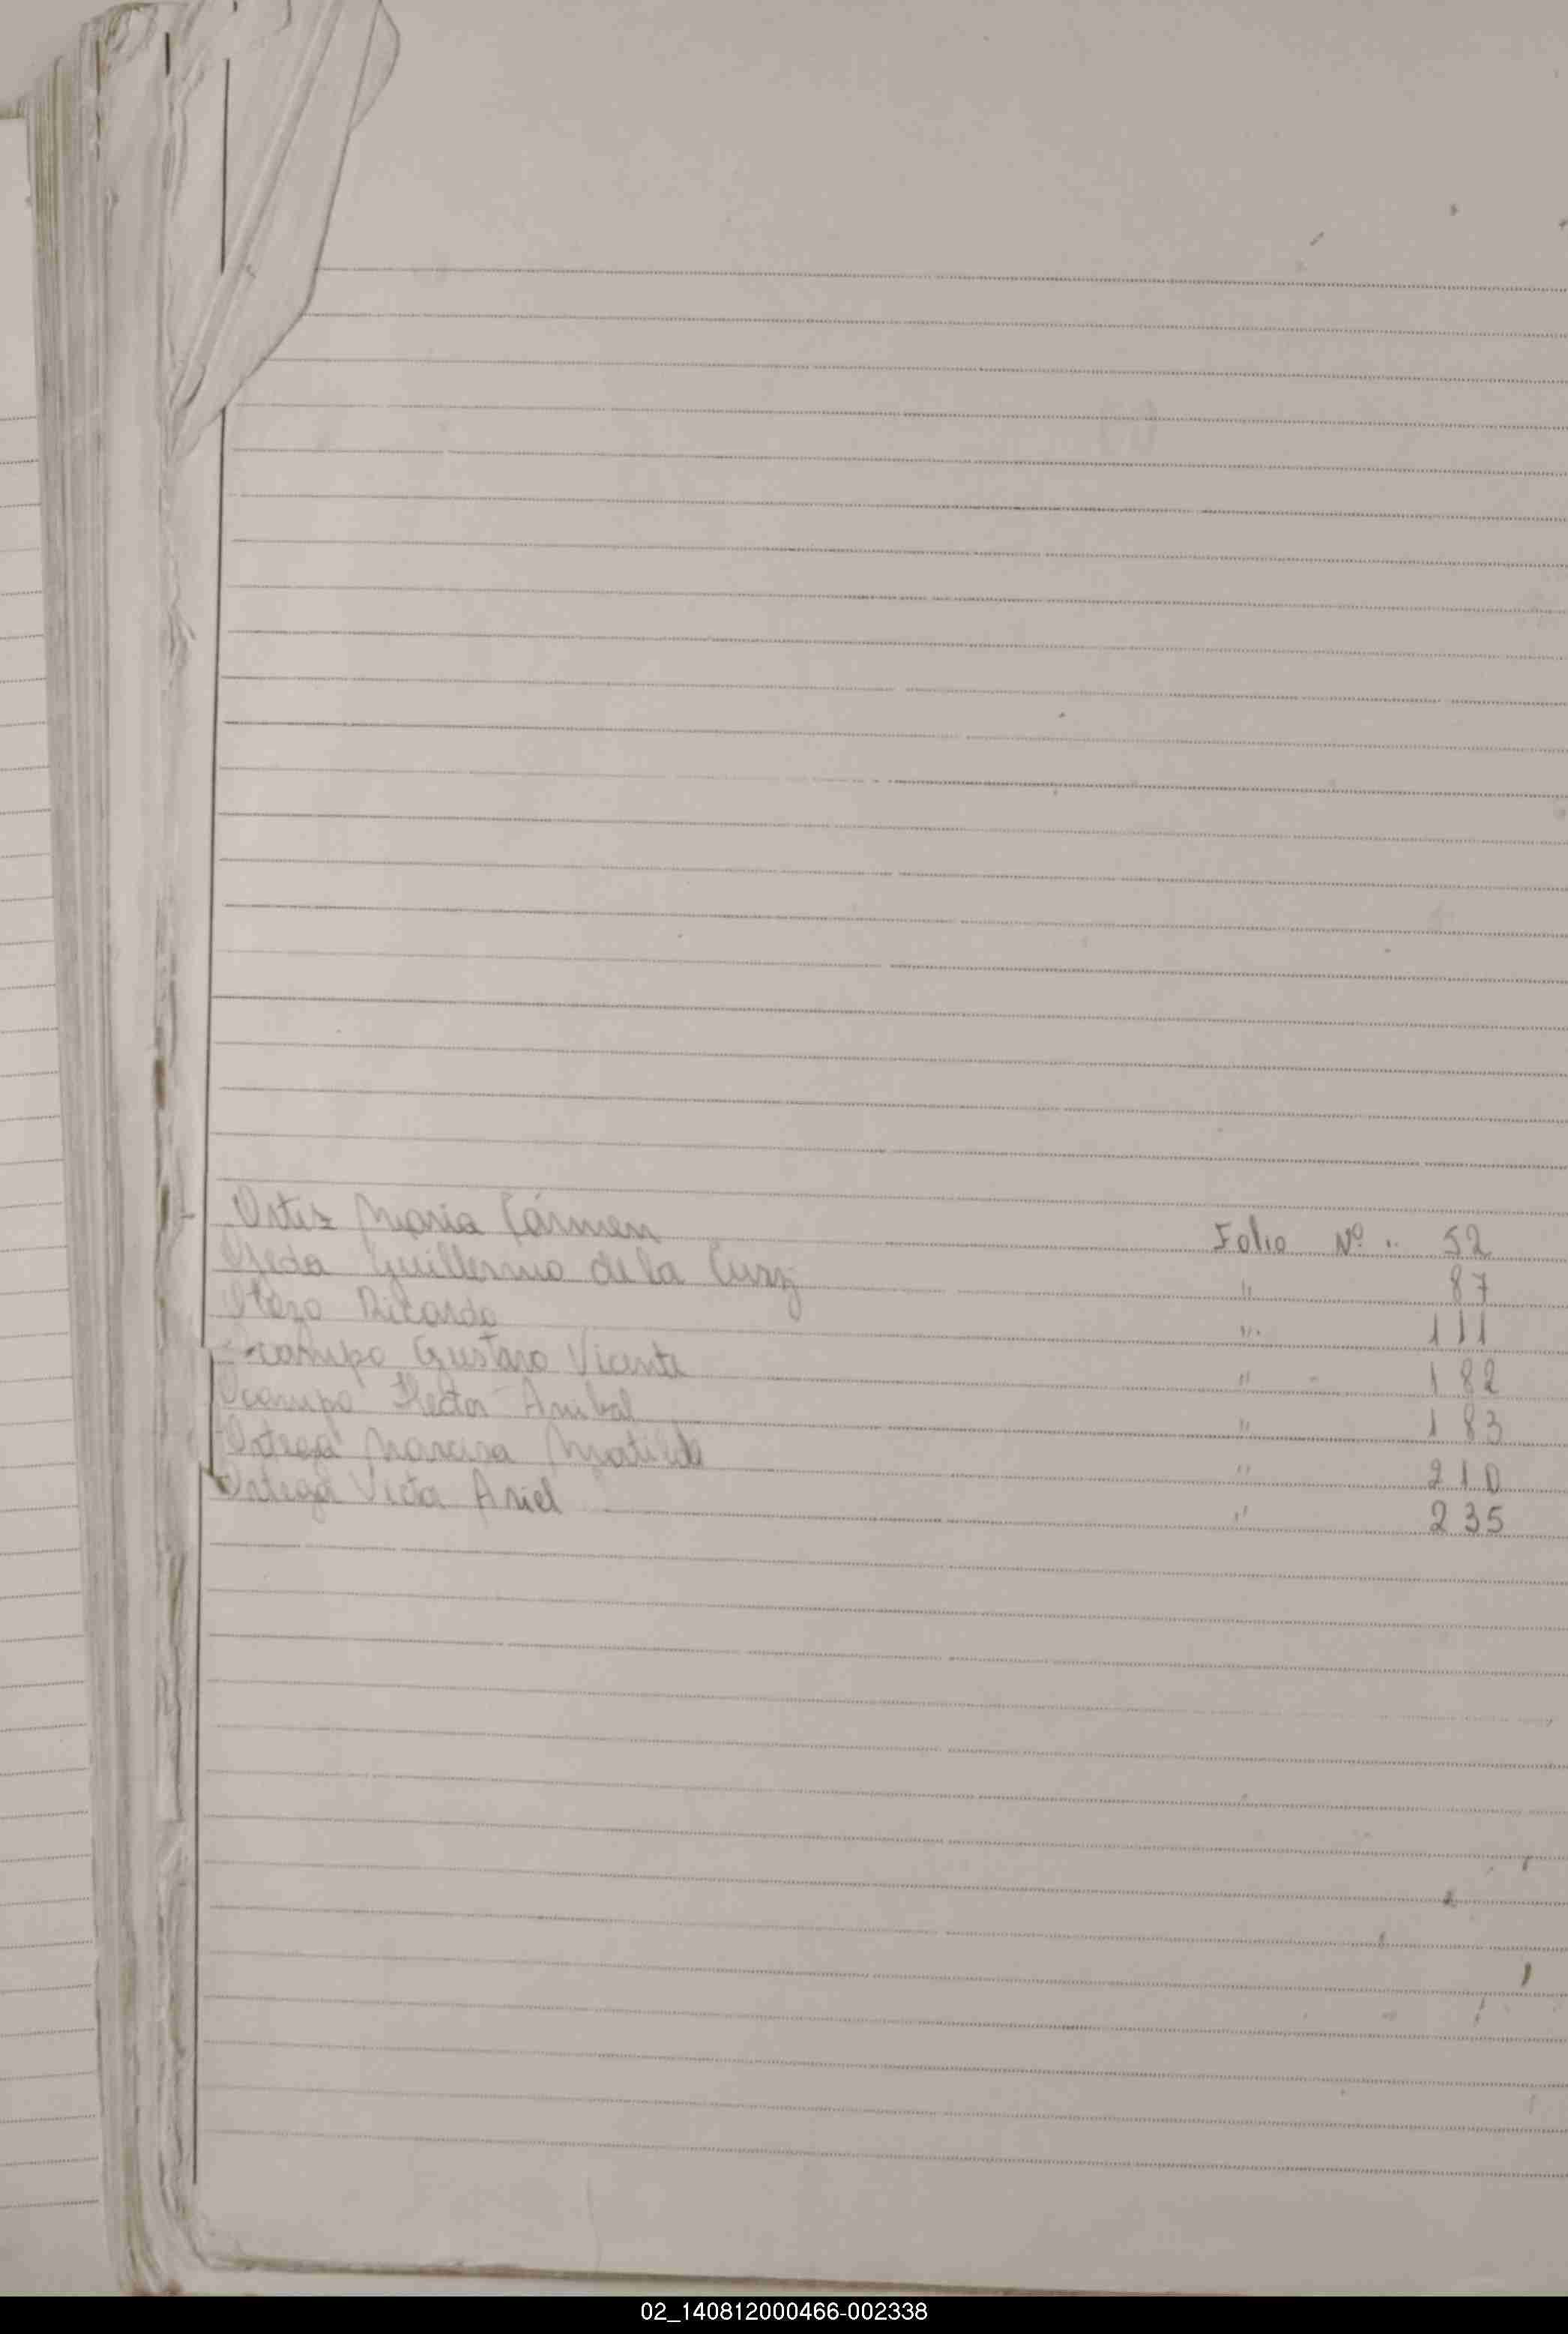 Ortiz Maria Cármen Folio Nº " 52
Ojeda Guillermo de la Curz " 87
Otazo Ricardo " 111
Ocampo Gustavo Vicente " 182
Ocampo Hector Anibal " 183
Ortega Narcisa Matilde " 210
Ortega Victor Ariel " 235
02_140812000466-002338